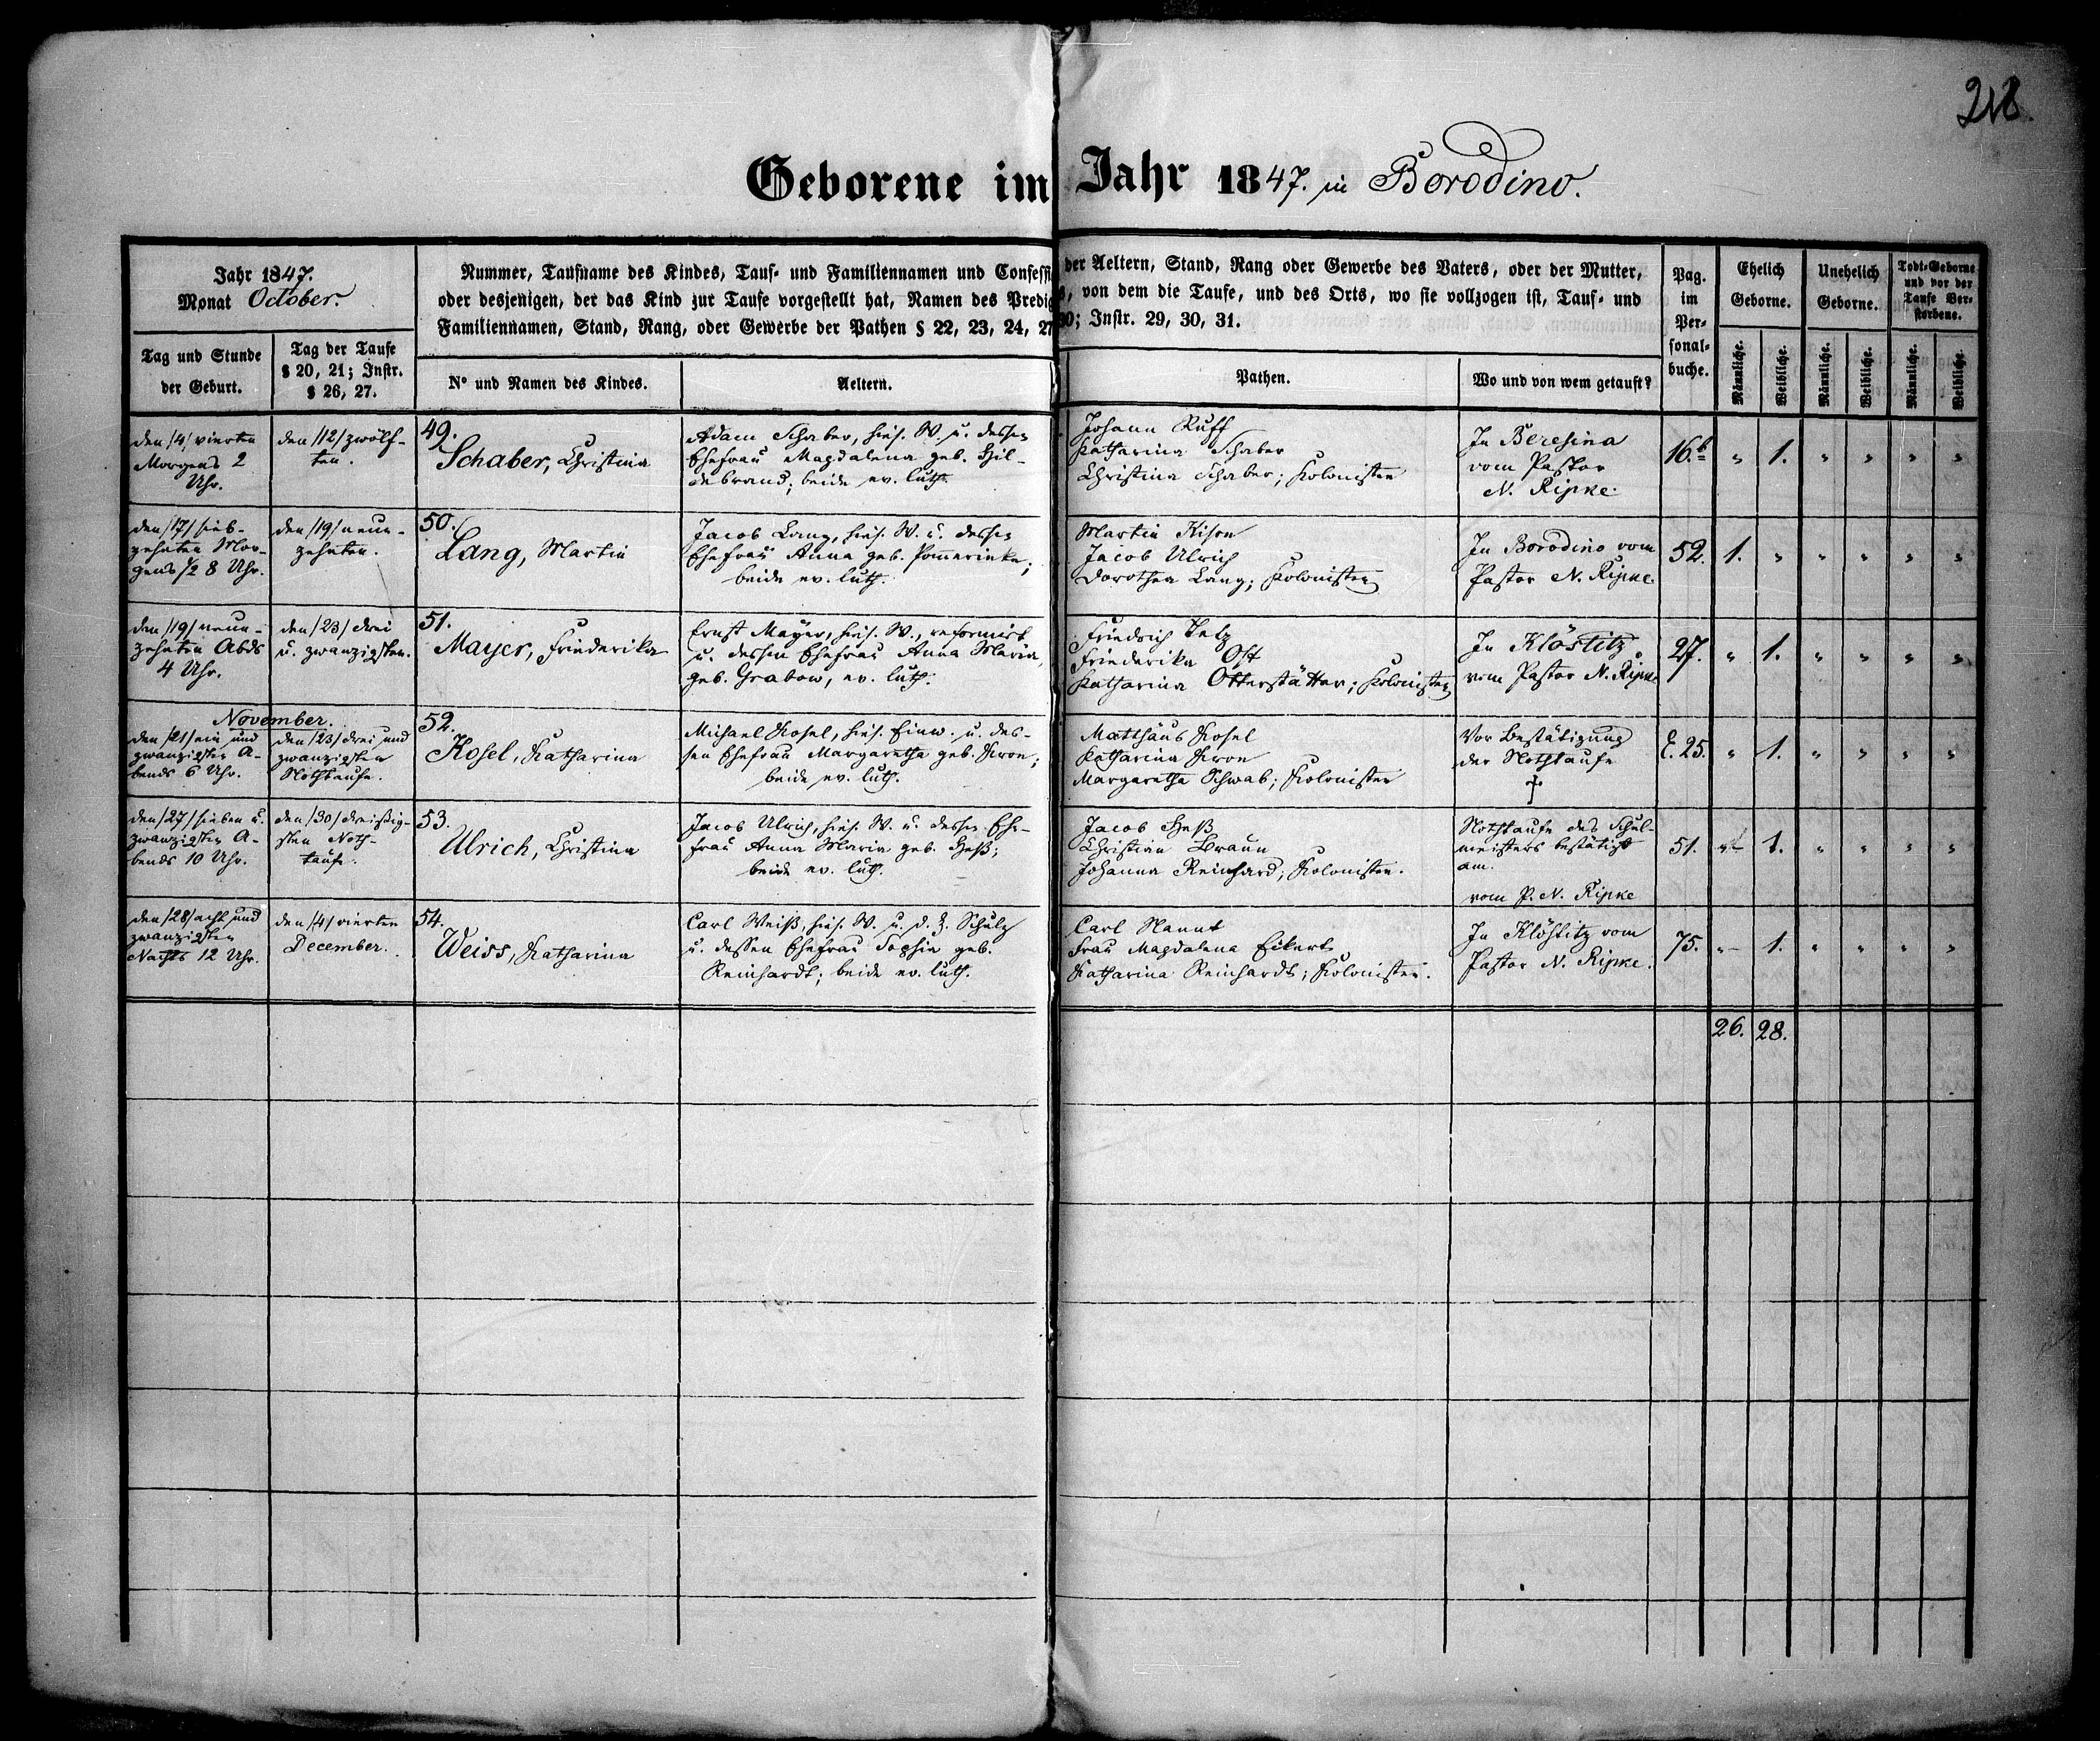 218.
Geborene im Jahr 1847. in Borodino.
Jahr 1847.
Monat October.
Nummer, Taufname des Kindes, Tauf- und Familiennamen und Confessi
oder desjenigen, der das Kind zur Taufe vorgestellt hat, Namen des Predig
Familiennamen, Stand, Rang, oder Gewerbe der Pathen § 22, 23, 24, 27
der Aeltern, Stand, Rang oder Gewerbe des Vaters, oder der Mutter,
s, von dem die Taufe, und des Orts, wo sie vollzogen ist, Tauf- und
30; Instr. 29, 30, 31.
Pag.
im
Per-
sonal-
buche.
Ehelich
Geborne.
Unehelich
Geborne.
Todt-Geborne
und vor der
Taufe Ver-
storbene.
Tag und Stunde
der Geburt.
Tag der Taufe
§ 20, 21; Instr.
§ 26, 27.
N° und Namen des Kindes.
Aeltern.
Pathen.
Wo und von wem getauft?
Männliche.
Weibliche.
Männliche.
Weibliche.
Männliche.
Weibliche.
den /4/ vierten
Morgens 2
Uhr.
den /12/ zwölf-
ten.
49.
Schaber, Christina
Adam Schaber, hies. W. u. dessen
Ehefrau Magdalena geb. Hil-
debrand; beide ev. luth.
Johann Ruff
Katharina Schaber
Christina Schaber; Kolonisten
In Beresina
vom Pastor
N. Ripke.
16.b " 1. " " " "
den /17/ sieb-
zehnten Mor-
gens 1/2 8 Uhr.
den /19/ neun-
zehnten.
50.
Lang, Martin
Jacob Lang, hies. W. u. dessen
Ehefrau Anna geb. Pommerinke;
beide ev. luth.
Martin Rison
Jacob Ulrich
Dorothea Lang; Kolonisten
In Borodino vom
Pastor N. Ripke.
52. 1. " " " " "
den /19/ neun-
zehnten Abds
4 Uhr.
den /23/ drei
u. zwanzigsten.
51.
Mayer, Friederika
Ernst Mayer, hies. W., reformirt
u. dessen Ehefrau Anna Maria,
geb. Grabow, ev. luth.
Friedrich Telz
Friederika Ost
Katharina Otterstätter; Kolonisten
In Klöstitz
vom Pastor N. Ripke
27. " 1. " " " "
November.
den /21/ ein und
zwanzigsten A-
bends 6 Uhr.
den /23/ drei und
zwanzigsten
Nothtaufe.
52.
Kosel, Katharina
Michael Kosel, hies. Einw. u. des-
sen Ehefrau Margaretha geb. Kron;
beide ev. luth.
Matthäus Kosel
Katharina Kron
Margaretha Schwab; Kolonisten
Vor Bestätigung
der Nothtaufe
†
E. 25. " 1. " " " "
den /27/ sieben u.
zwanzigsten A-
bends 10 Uhr.
den /30/ dreißig-
sten Noth-
taufe.
53.
Ulrich, Christina
Jacob Ulrich, hies. W. u. dessen Ehe-
frau Anna Maria geb. Heß;
beide ev. luth.
Jacob Heß
Christian Braun
Johanna Reinhard; Kolonisten.
Nothtaufe des Schul-
meisters bestätigt
am.
vom P. N. Ripke
51. " 1. " " " "
den /28/ acht und
zwanzigsten
Nachts 12 Uhr.
den /4/ vierten
December.
54.
Weiss, Katharina
Carl Weiß, hies. W. u. d. Z. Schulz
u. dessen Ehefrau Sophie geb.
Reinhardt; beide ev. luth.
Carl Nannt
Frau Magdalena Eckert
Katharina Reinhardt; Kolonisten.
In Klöstitz vom
Pastor N. Ripke.
75. " 1. " " " "
26. 28.